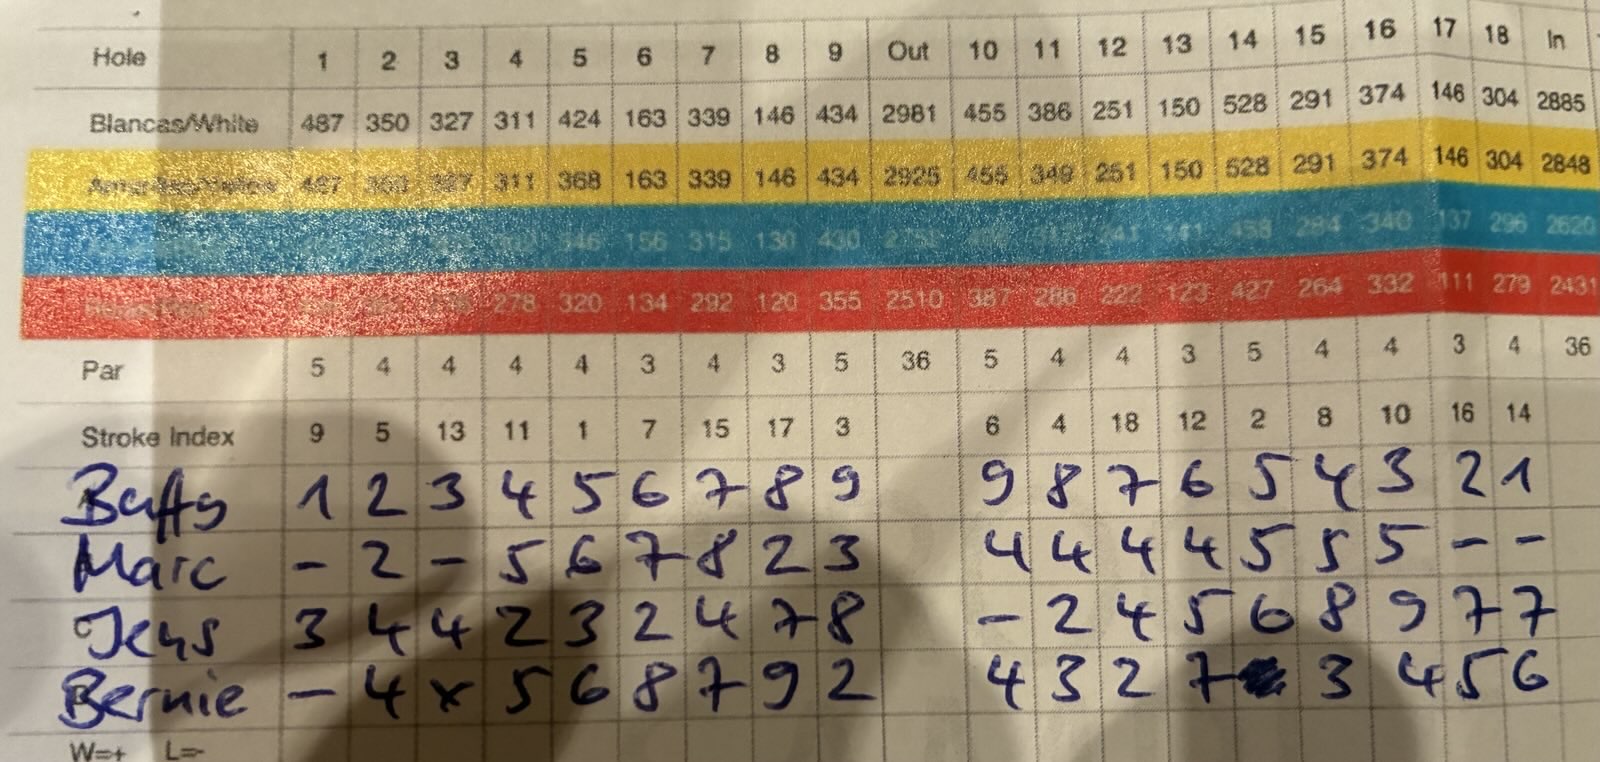 Hole 1 2 3 4 5 6 7 8 9 Out 10 11 12 13 14 15 16 17 18 In
Blancas/White 487 350 327 311 424 163 339 146 434 2981 455 386 251 150 528 291 374 146 304 2885
487 327 311 368 163 339 146 434 2925 455 349 251 150 528 291 374 146 304 2848
346 156 315 130 430 284 340 137 296 2620
278 320 134 292 120 355 2510 387 286 222 123 427 264 332 111 279 2431
Par 5 4 4 4 4 3 4 3 5 36 5 4 4 3 5 4 4 3 4 36
Stroke Index 9 5 13 11 1 7 15 17 3 6 4 18 12 2 8 10 16 14
1 2 3 4 5 6 7 8 9 9 8 7 6 5 4 3 2 1
Marc - 2 - 5 6 7 8 2 3 4 4 4 4 5 5 5 - -
Jens 3 4 4 2 3 2 4 7 8 - 2 4 5 6 8 9 7 7
Bernie - 4 x 5 6 8 7 9 2 4 3 2 7 3 4 5 6
W=+ L=-